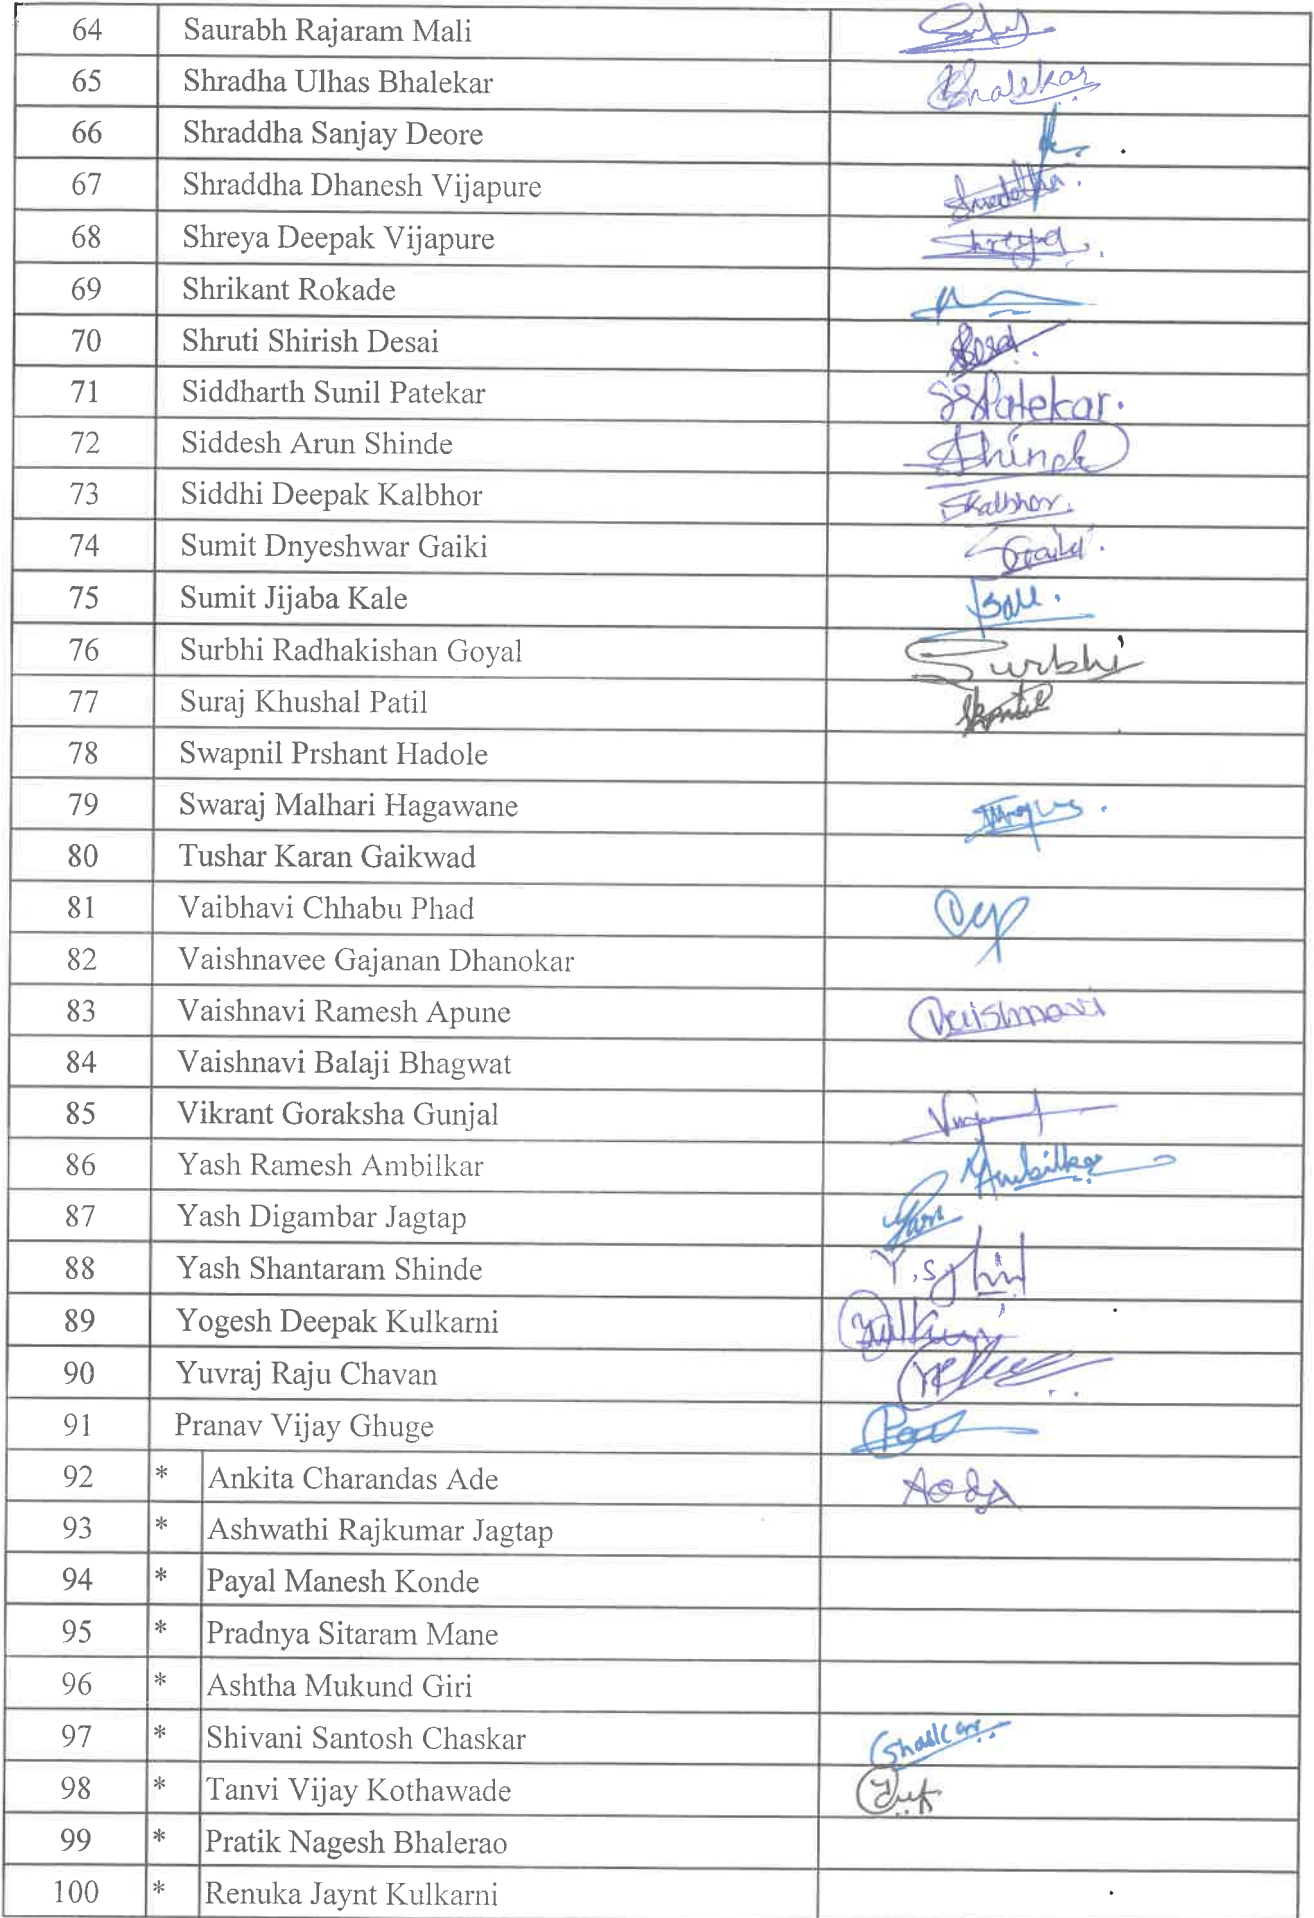 64 Saurabh Rajaram Mali
65 Shradha Ulhas Bhalekar Bhalekar
66 Shraddha Sanjay Deore
67 Shraddha Dhanesh Vijapure Shraddha
68 Shreya Deepak Vijapure Shreya
69 Shrikant Rokade
70 Shruti Shirish Desai Desai
71 Siddharth Sunil Patekar SSPatekar.
72 Siddesh Arun Shinde Shinde
73 Siddhi Deepak Kalbhor SKalbhor.
74 Sumit Dnyeshwar Gaiki
75 Sumit Jijaba Kale
76 Surbhi Radhakishan Goyal Surbhi
77 Suraj Khushal Patil
78 Swapnil Prshant Hadole
79 Swaraj Malhari Hagawane
80 Tushar Karan Gaikwad
81 Vaibhavi Chhabu Phad
82 Vaishnavee Gajanan Dhanokar
83 Vaishnavi Ramesh Apune Vaishnavi
84 Vaishnavi Balaji Bhagwat
85 Vikrant Goraksha Gunjal
86 Yash Ramesh Ambilkar YAmbilkar
87 Yash Digambar Jagtap
88 Yash Shantaram Shinde
89 Yogesh Deepak Kulkarni
90 Yuvraj Raju Chavan
91 Pranav Vijay Ghuge
92 * Ankita Charandas Ade
93 * Ashwathi Rajkumar Jagtap
94 * Payal Manesh Konde
95 * Pradnya Sitaram Mane
96 * Ashtha Mukund Giri
97 * Shivani Santosh Chaskar
98 * Tanvi Vijay Kothawade
99 * Pratik Nagesh Bhalerao
100 * Renuka Jaynt Kulkarni